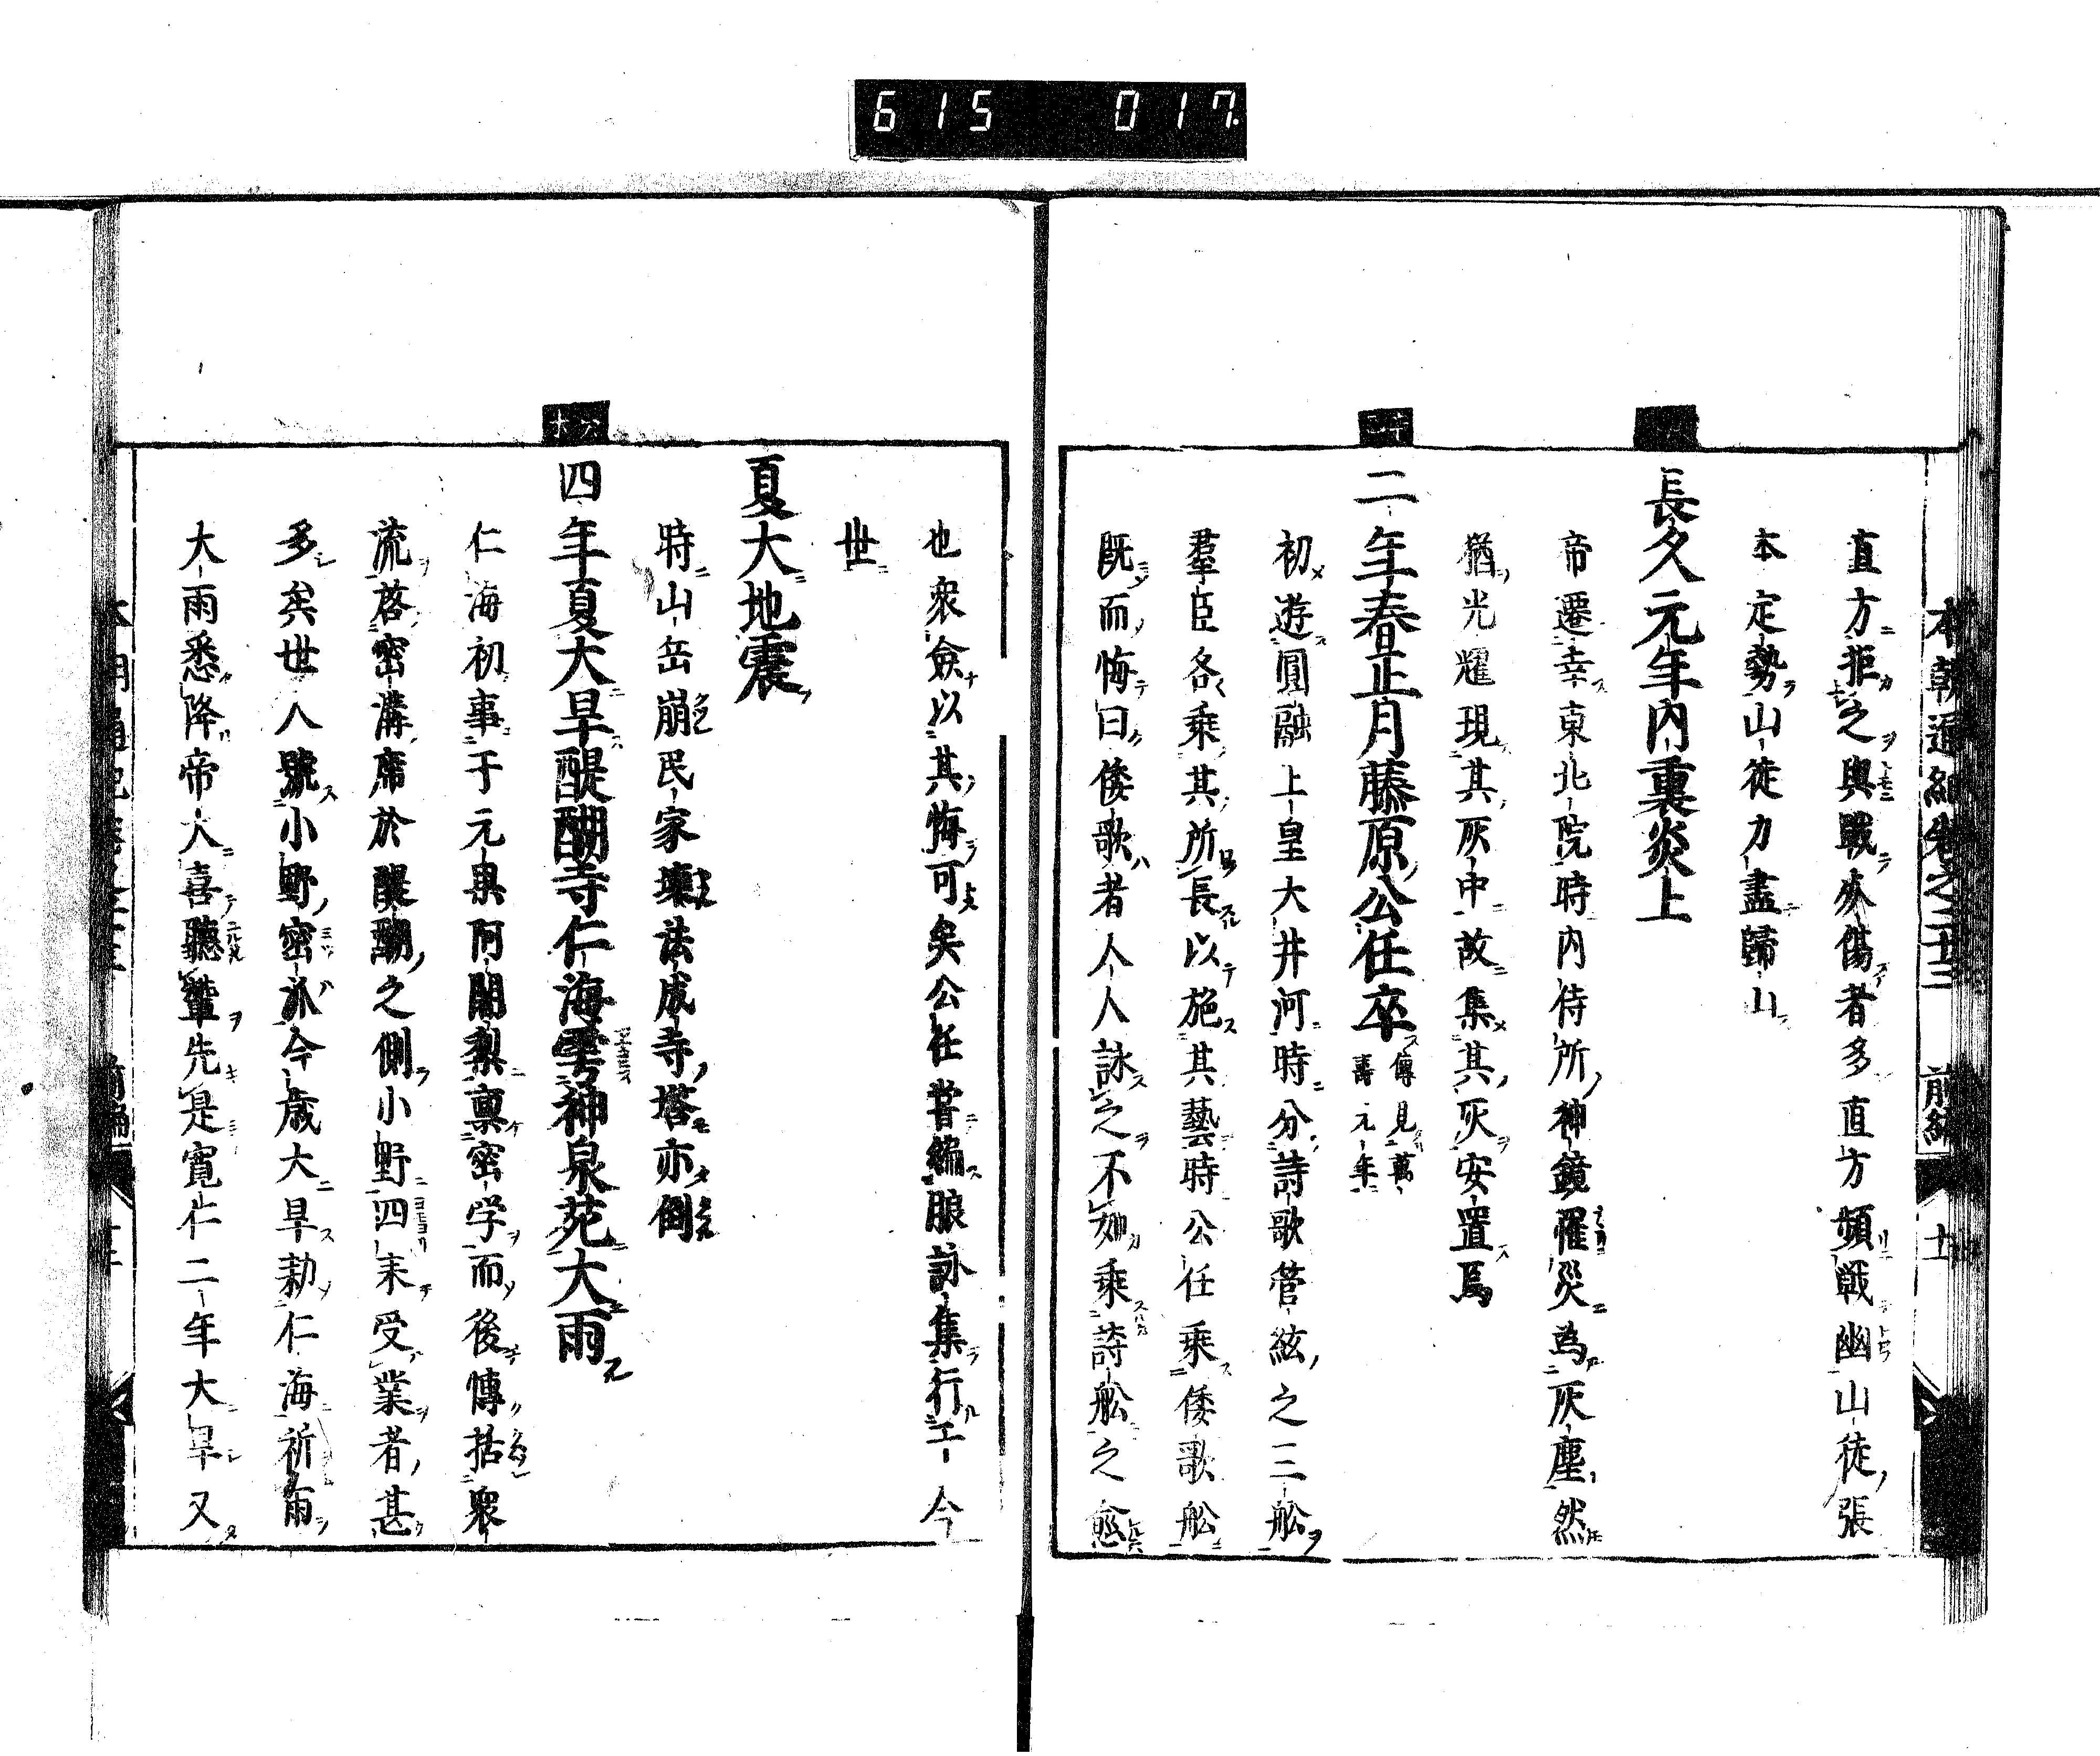 615 017
本朝通紀卷之二十三 前編 十
直方拒之與戰疵傷者多直方頻戰幽山徒張
本定勢山徒力盡歸山
長久元年內裏炎上
帝遷幸東北院時內侍所神鏡罹災為灰塵然
猶光耀現其灰中故集其灰安置焉
二年春正月藤原公任卒
傳見萬
壽元年
初遊圓融上皇大井河時分詩歌管絃之三舩
羣臣各乘其所長以施其藝時公任乘倭歌舩
既而悔曰倭歌者人人詠之不如乘詩舩之愈
也衆僉以其悔可矣公任嘗編朗詠集行于今
世
夏大地震
時山岳崩民家壞法成寺塔亦倒
四年夏大旱醍醐寺仁海雩神泉苑大雨
仁海初事于元杲阿闍梨稟密学而後博括衆
流啓密講席於醍醐之側小野四来受業者甚
多矣世人號小野密派今歲大旱勅仁海祈雨
大雨悉降帝大喜聽輦先是寬仁二年大旱又